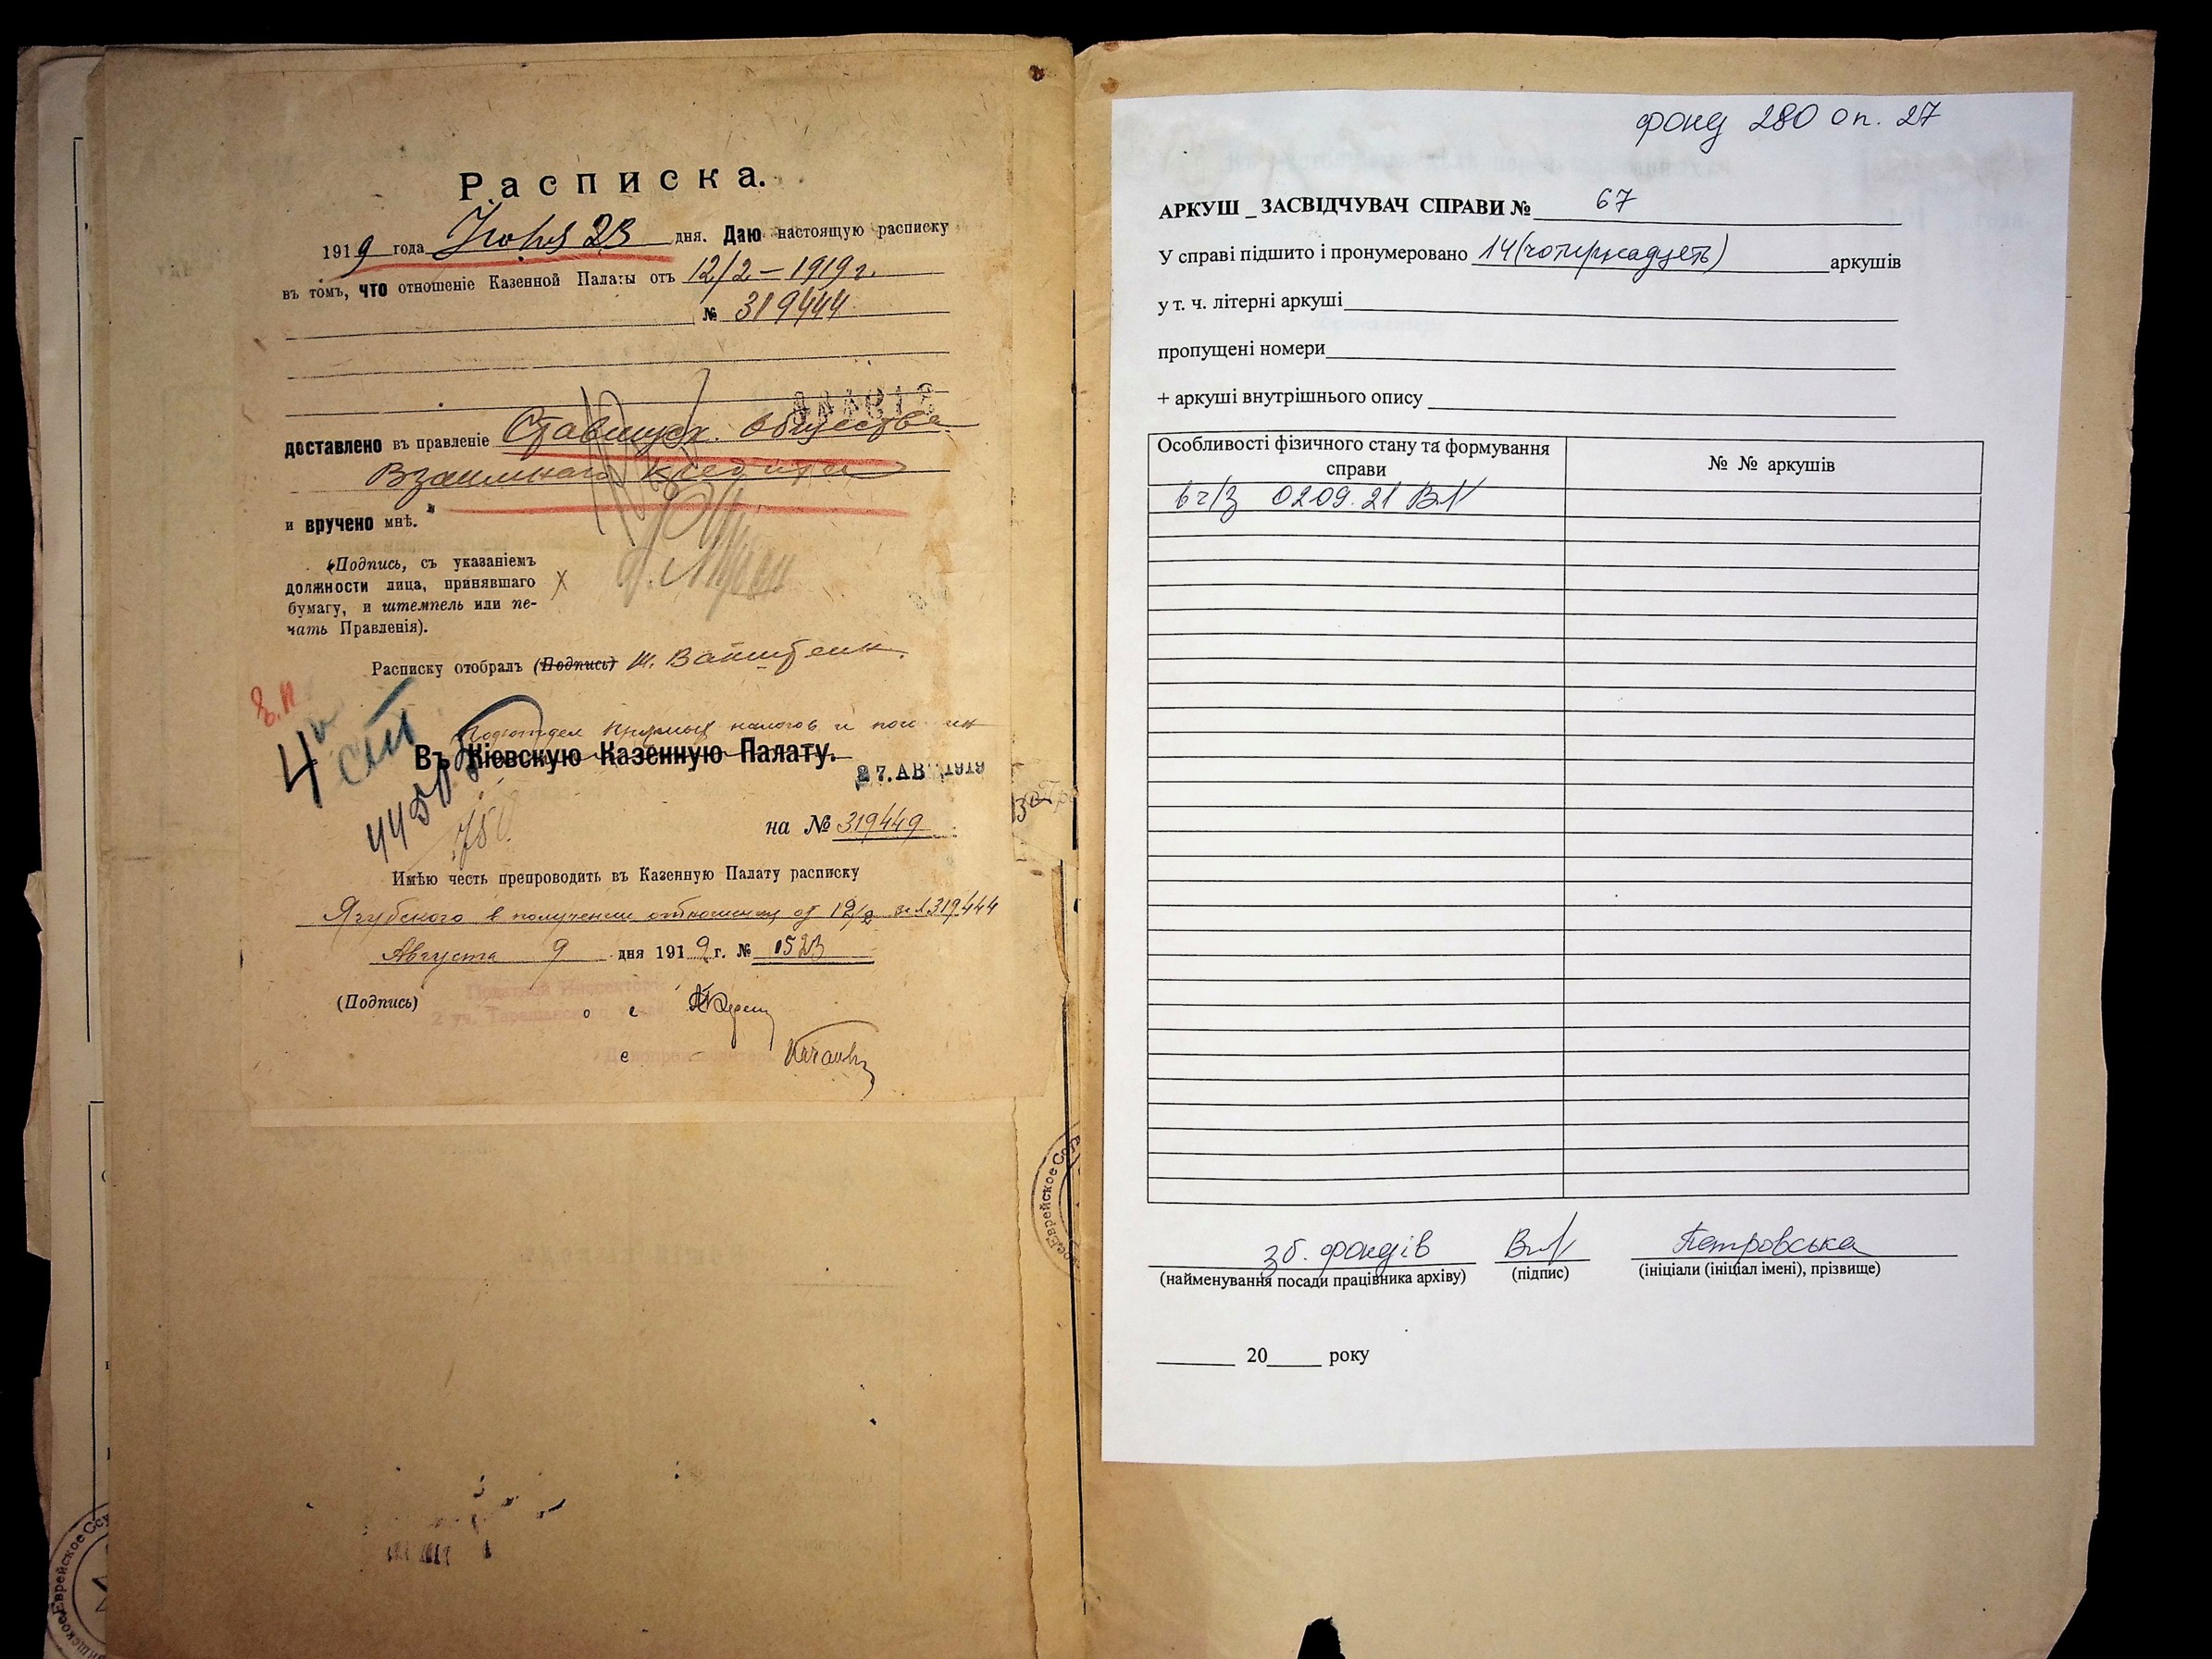 Расписка.
1919 года Июня 23 дня. Даю настоящую расписку
въ томъ, что отношеніе Казенной Палаты отъ 12/2 – 1919 г.
№ 319444
доставлено въ правленіе Ставищск. общества
Взаимнаго кредита
и вручено мнѣ.
(Подпись, съ указаніемъ
должности лица, принявшаго
бумагу, и штемпель или пе-
чать Правленія).
Расписку отобралъ (Подпись) Ш. Вайнштейн
4й
стл
Подотдел прямых налогов и
Въ Кіевскую Казенную Палату.
27. АВГ 1919
на № 319449
Имѣю честь препроводить въ Казенную Палату расписку
Ягубского в получении отношения от 12/2 за № 319444
Августа 9 дня 1919 г. № 1523
(Подпись)
Податной Инспекторъ
2 уч. Таращанск
Делопроизводитель
Еврейское
Еврейское Сс
фонд 280 оп. 27
АРКУШ _ ЗАСВІДЧУВАЧ СПРАВИ № 67
У справі підшито і пронумеровано 14 (чотирнадцять) аркушів
у т. ч. літерні аркуші
пропущені номери
+ аркуші внутрішнього опису
Особливості фізичного стану та формування справи
№ № аркушів
0209.21
зб. фондів
Петровська
(найменування посади працівника архіву) (підпис) (ініціали (ініціал імені), прізвище)
20 року